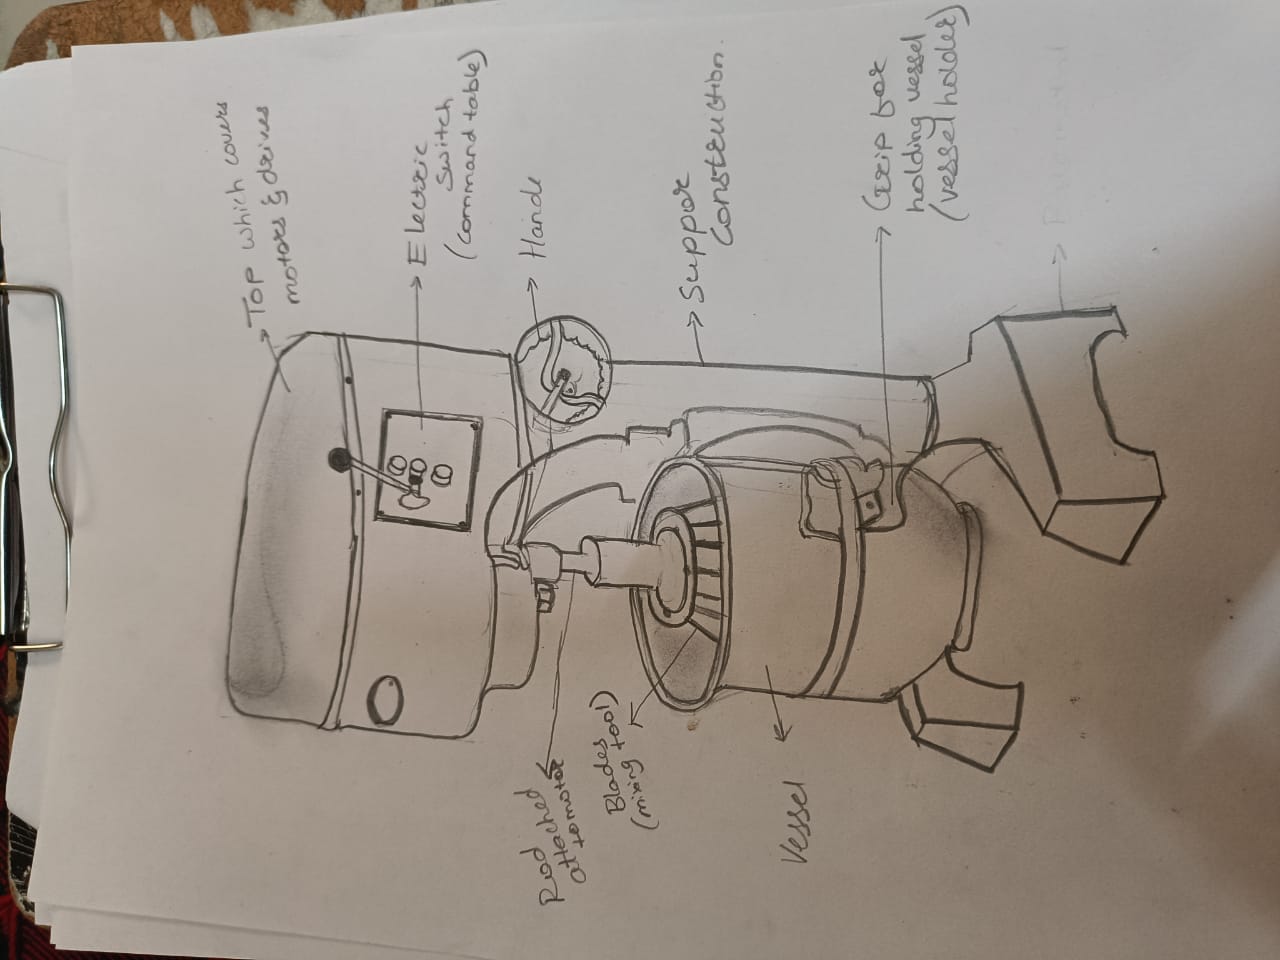 TOP which covers
motors & drives
Electric
switch
(command table)
Hande
Suppor
construction.
Grip for
holding vessel
(vessel holder)
Rod
attached
to motor
Blades
(mixing tool)
Vessel